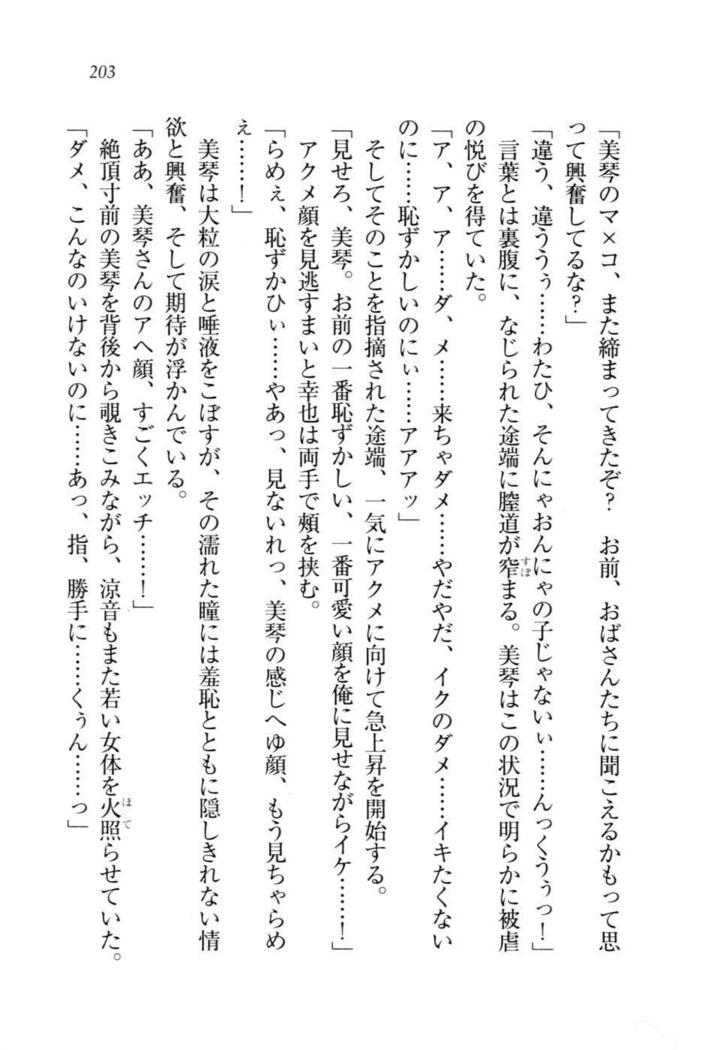 203
「美琴のマ×コ、また締まってきたぞ？　お前、おばさんたちに聞こえるかもって思
って興奮してるな？」
「違う、違ううぅ……わたひ、そんにゃおんにゃの子じゃないぃ……んっくうぅっ！」
言葉とは裏腹に、なじられた途端に膣道が窄まる。美琴はこの状況で明らかに被虐
すぼ
の悦びを得ていた。
「ア、ア、ア……ダ、メ……来ちゃダメ……やだやだ、イクのダメ……イキたくない
のに……恥ずかしいのにぃ……アアアッ」
そしてそのことを指摘された途端、一気にアクメに向けて急上昇を開始する。
「見せろ、美琴。お前の一番恥ずかしい、一番可愛い顔を俺に見せながらイケ……！」
アクメ顔を見逃すまいと幸也は両手で頬を挟む。
「らめぇ、恥ずかひぃ……やあっ、見ないれっ、美琴の感じへゆ顔、もう見ちゃらめ
ぇ……！」
美琴は大粒の涙と唾液をこぼすが、その濡れた瞳には羞恥とともに隠しきれない情
欲と興奮、そして期待が浮かんでいる。
「ああ、美琴さんのアヘ顔、すごくエッチ……！」
絶頂寸前の美琴を背後から覗きこみながら、涼音もまた若い女体を火照らせていた。
ほて
「ダメ、こんなのいけないのに……あっ、指、勝手に……くぅん……っ」